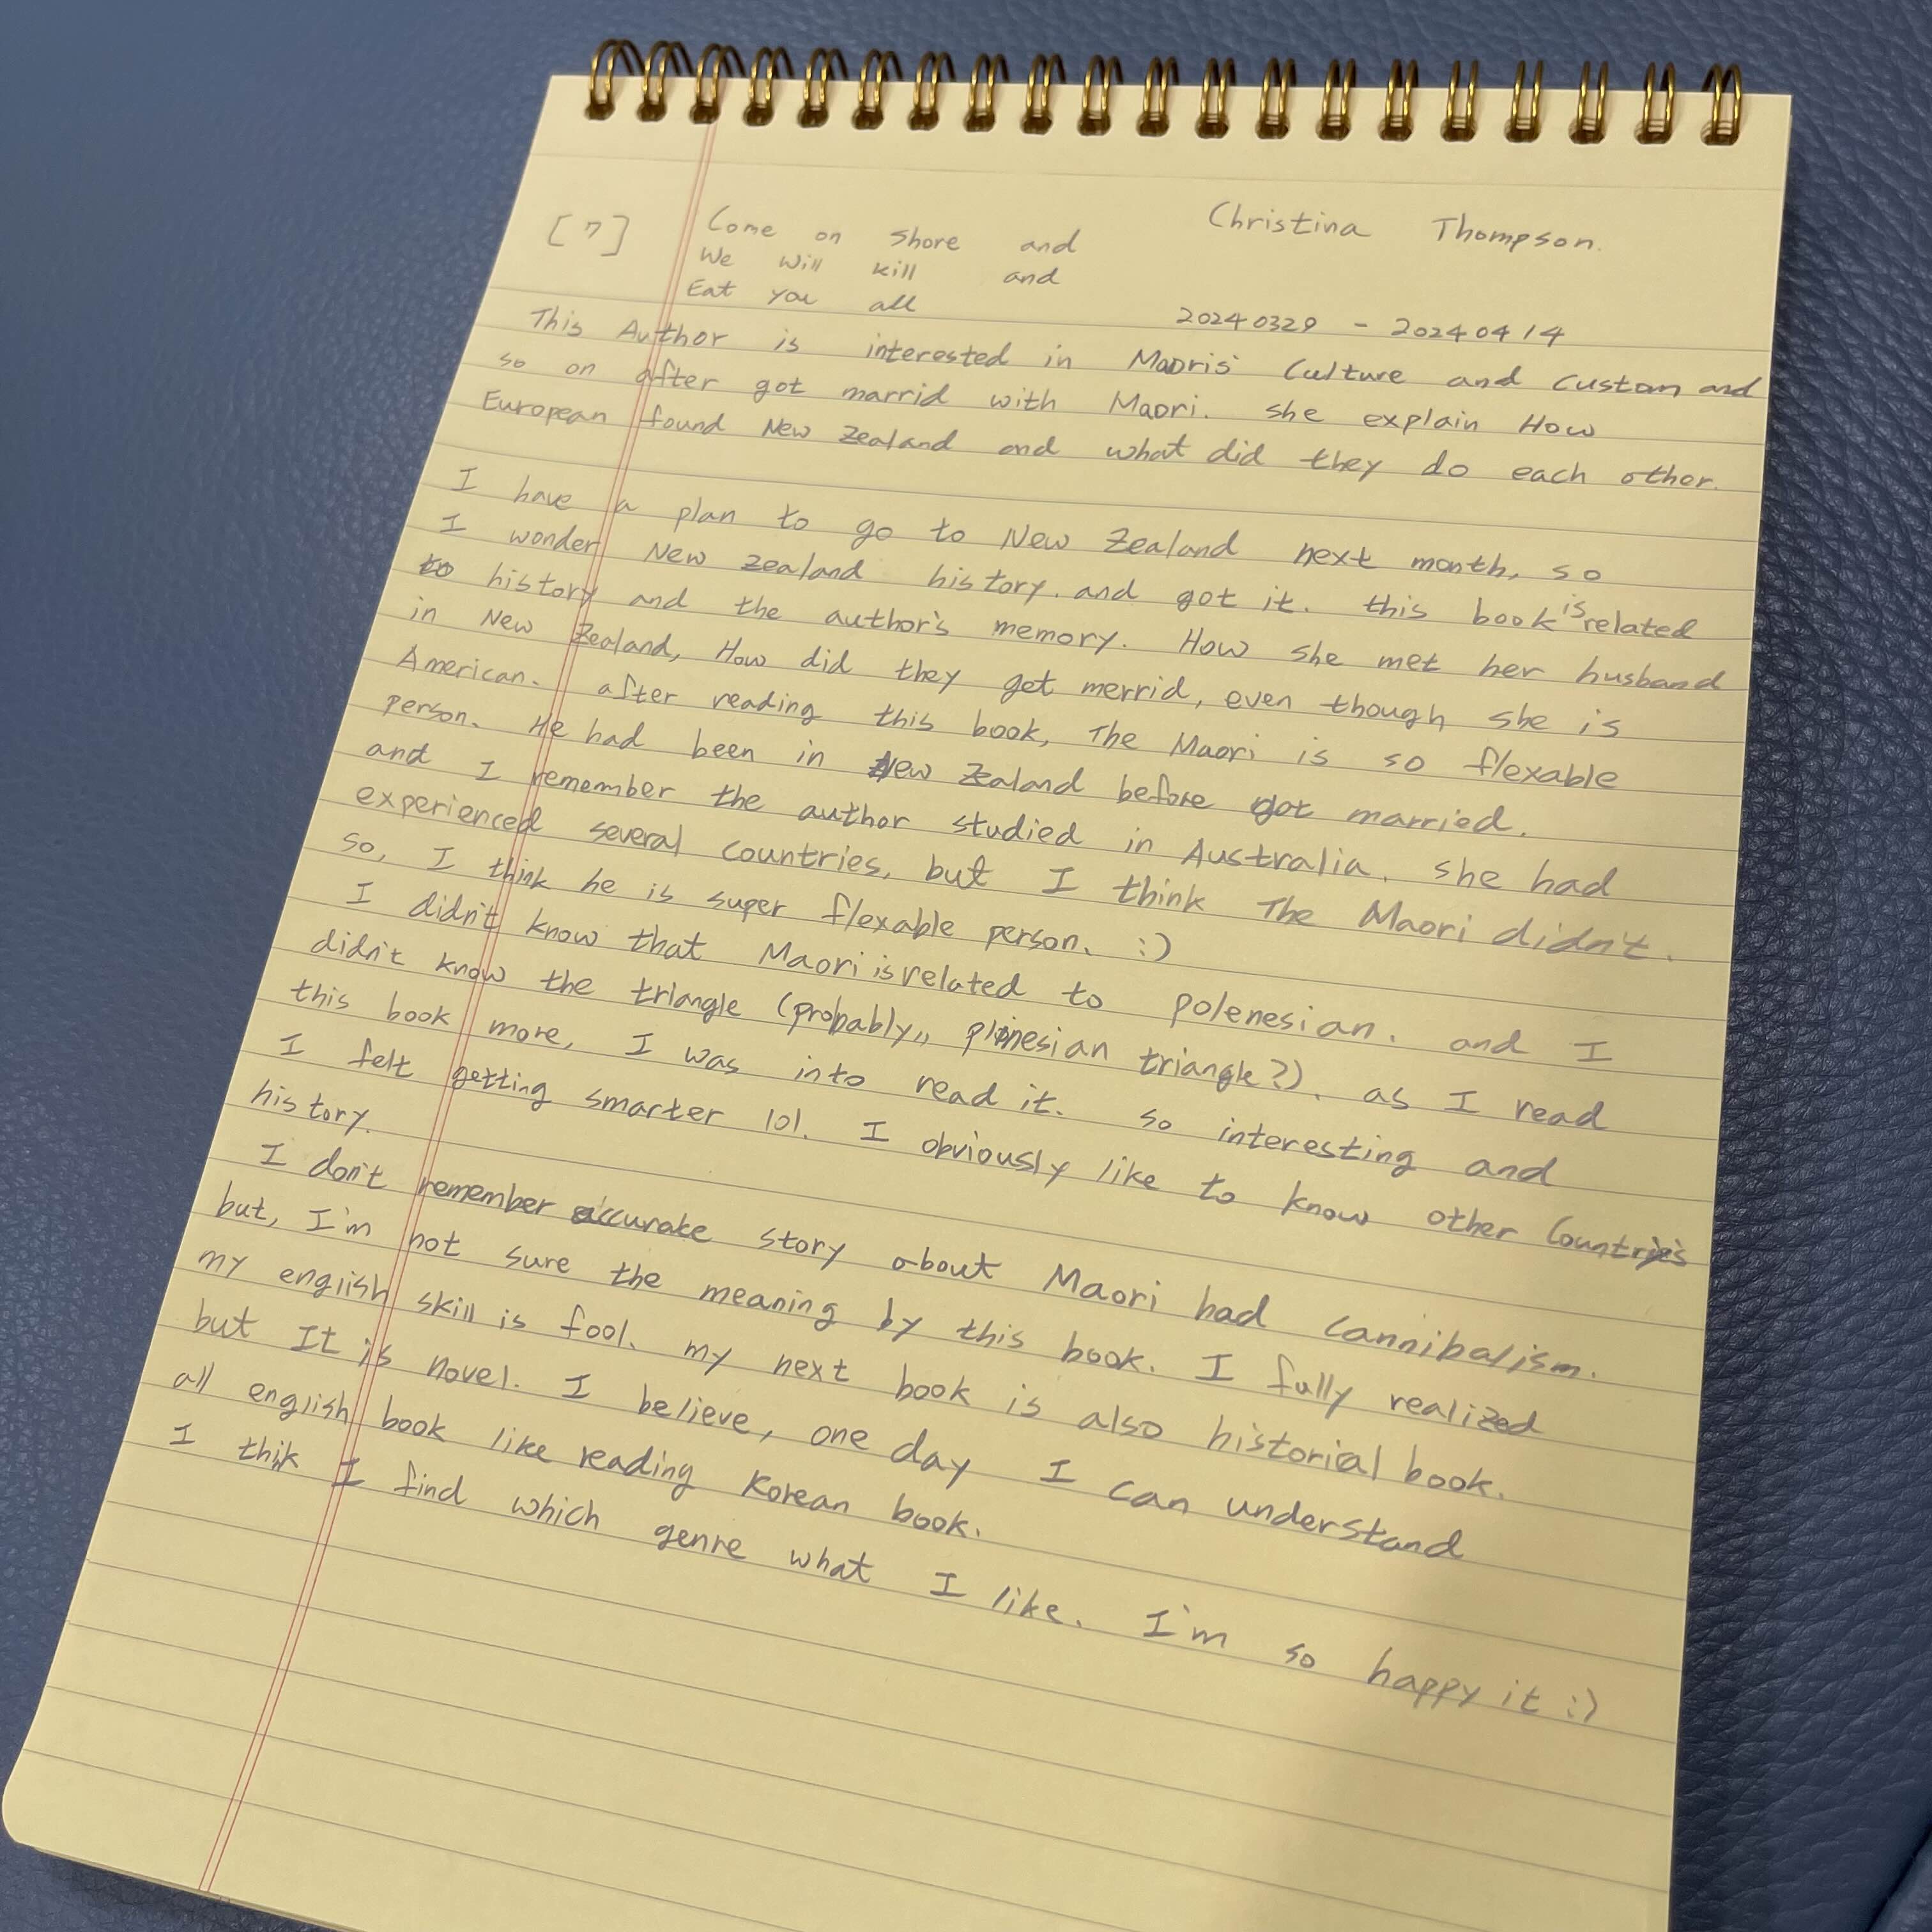 [7] Come on shore and Christina Thompson.
We will kill and
Eat you all 20240329 - 20240414
This Author is interested in Maoris' Culture and custom and
so on after got marrid with Maori. she explain How
European found New Zealand and what did they do each other.
I have a plan to go to New Zealand next month, so
I wonder New Zealand history. and got it. this book is related
to history and the author's memory. How she met her husband
in New Zealand, How did they get merrid, even though she is
American. after reading this book, The Maori is so flexable
person. He had been in New Zealand before got married.
and I remember the author studied in Australia. she had
experienced several countries, but I think The Maori didn't.
so, I think he is super flexable person. :)
I didn't know that Maori is related to polenesian. and I
didn't know the triangle (probably,, plinesian triangle?). as I read
this book more, I was into read it. so interesting and
I felt getting smarter lol. I obviously like to know other Countries
history.
I don't remember accurate story about Maori had cannibalism.
but, I'm not sure the meaning by this book. I fully realized
my english skill is fool. my next book is also historial book.
but It is novel. I believe, one day I can understand
all english book like reading Korean book.
I thik I find which genre what I like. I'm so happy it :)